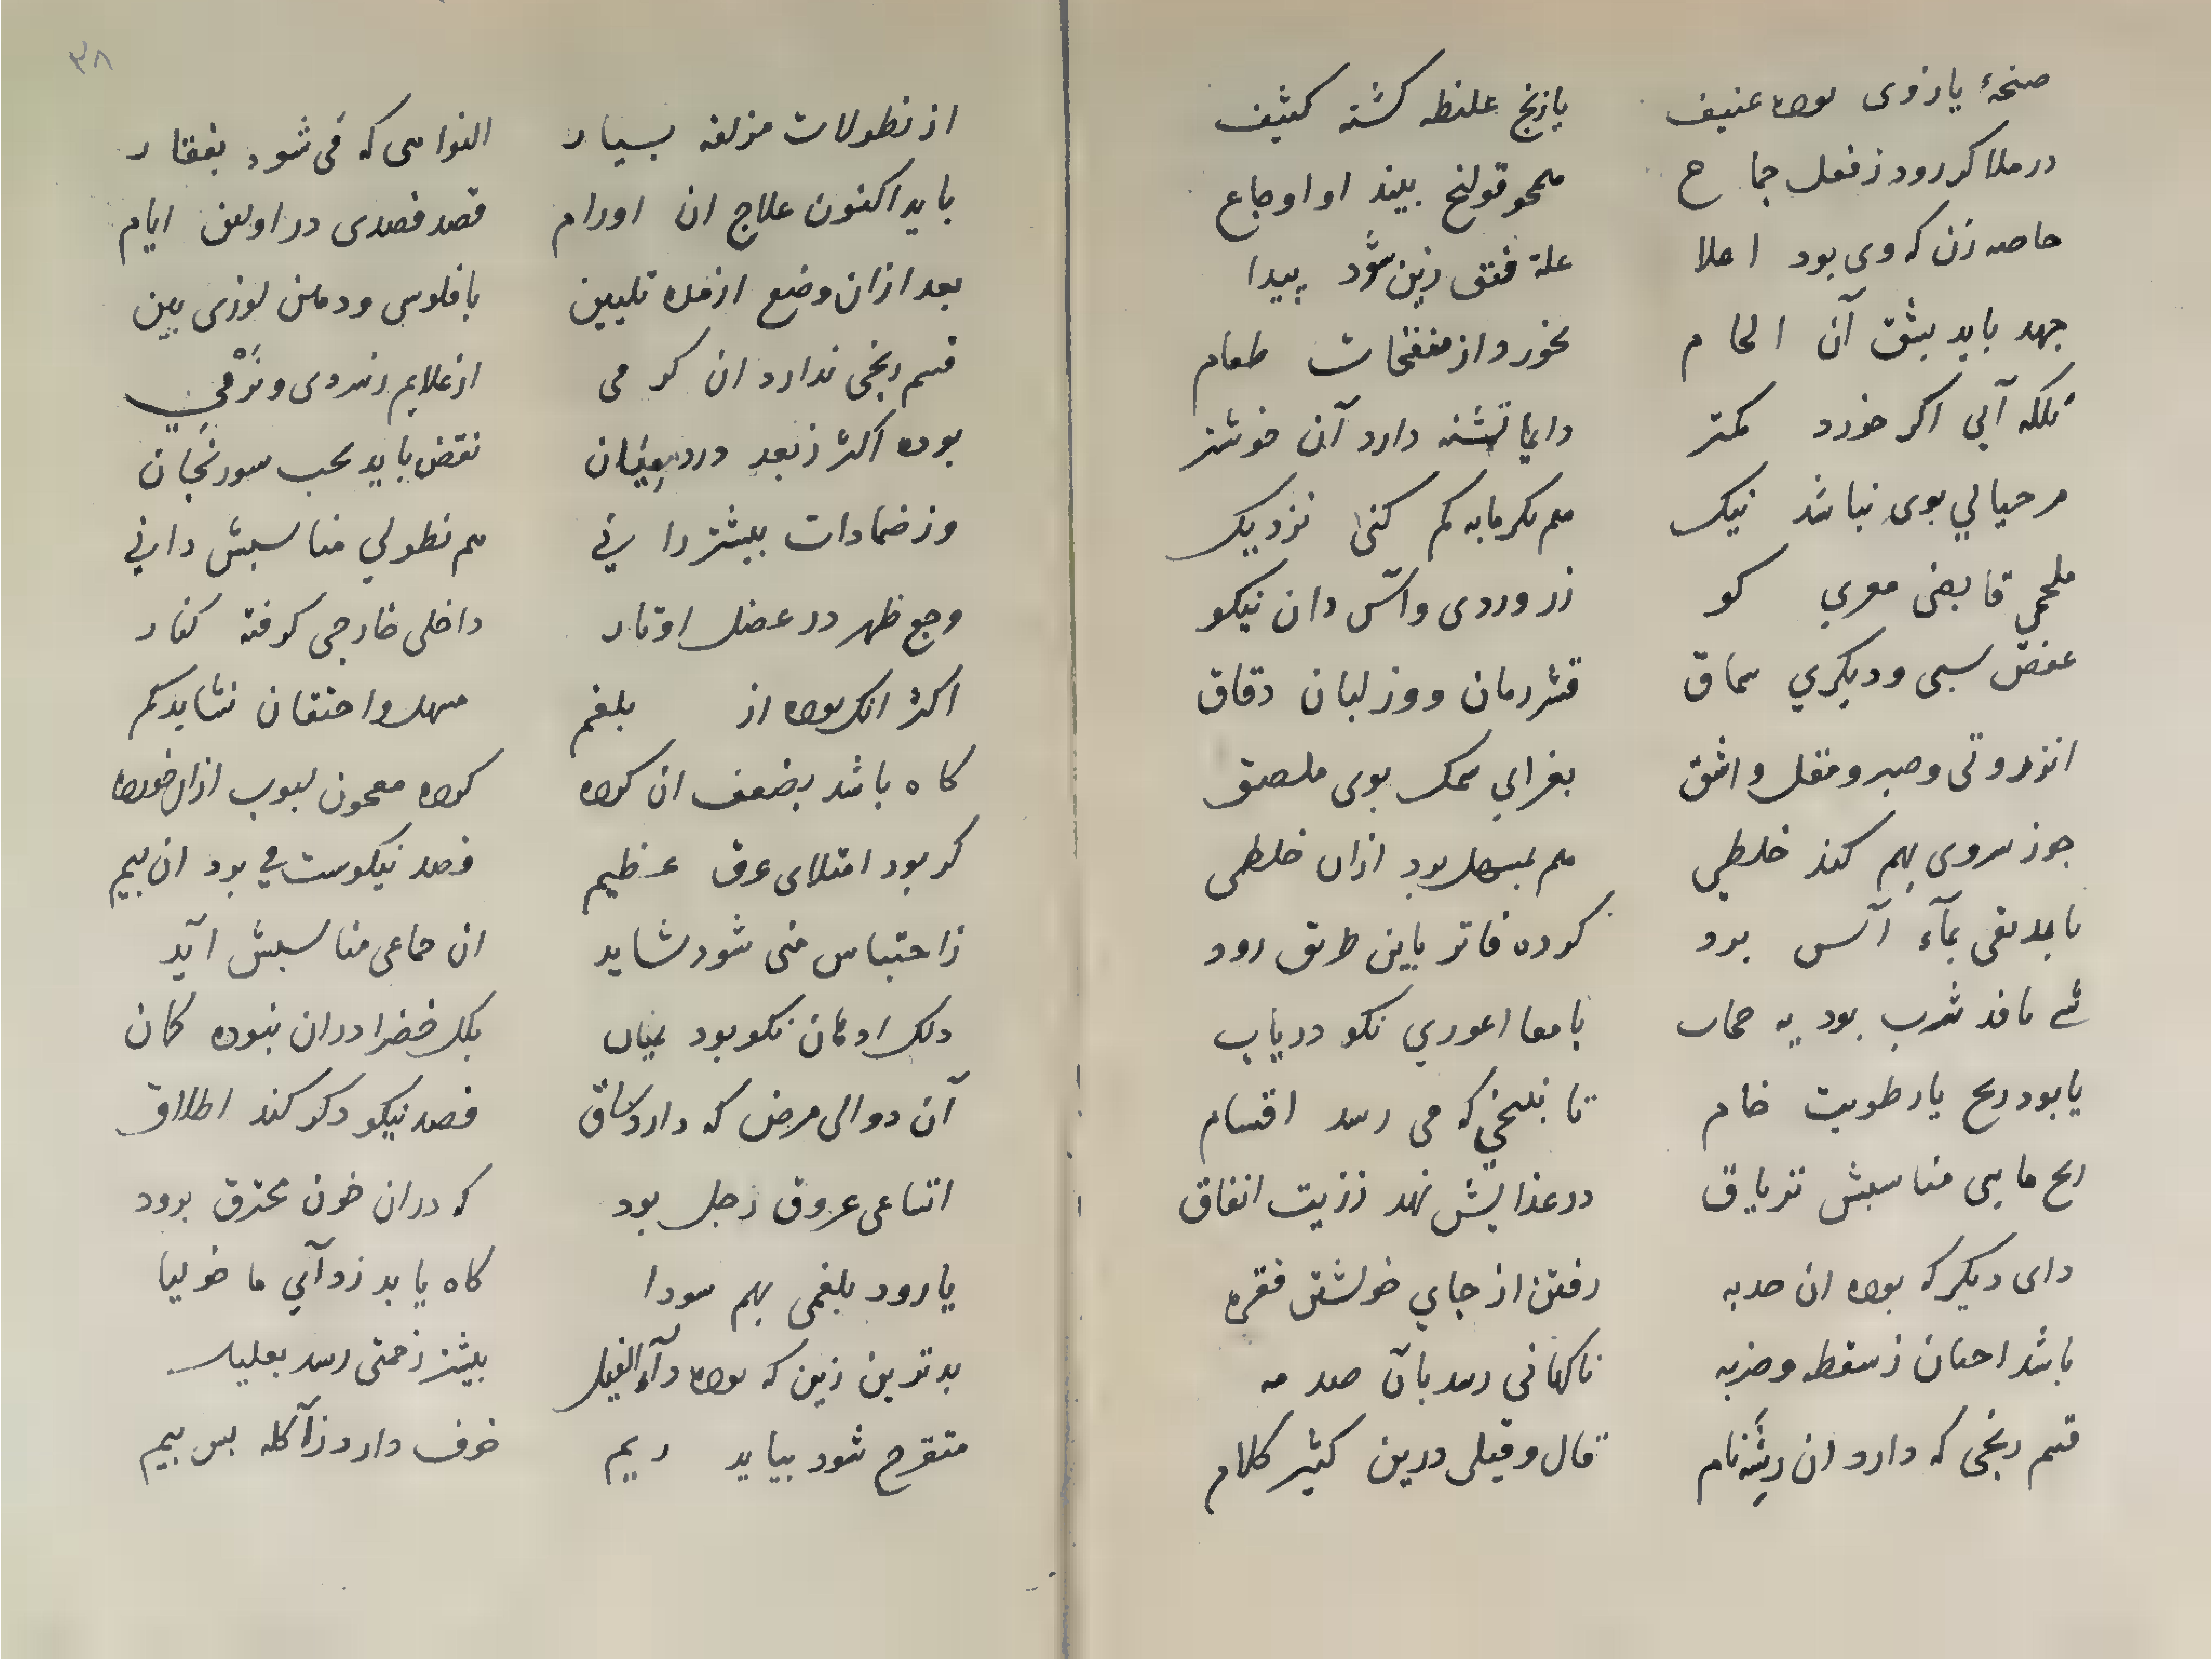 صنحهٔ یا زوی بوده عنیف یا زنج غلنطه کشته کثیف
در ملا کر رود ز فعل جماع همحو قولنج بیند او اوجاع
حاصه زن که وی بود اعلا علة فتق زین شود پیدا
جهد باید بشق آن الحام نخورد از منفخات طعام
بلکه آبی اکر خورد کمتر دایما تشنه دارد آن خوشتر
مر حبالی بوی نباشد نیک هم بکرمابه کم کنی نزدیک
ملحمی قابضی مغری کو زر وردی و آس دان نیکو
عفص سبی و دیکری سماق قشر رمان و وز لبان دقاق
انزروتی و صبر و مقل و اشق بغرای سمک بوی ملصق
جوز سروی بهم کند خلطی هم بمسهل بود ازان خلطی
بماء آس برد کرده فاتر باین طریق رود
نافذ شرب بود با معا اعوری نکو دریاب
یا بود ریح یا رطوبت خام تا که می رسد اقسام
ریح مایی مناسبش تریاق در غذایش نهد ززیت انفاق
دای دیکر که بوده ان حدبه رفتن از جای خولشتن فقره
باشد احیان ز سقطه و ضربه ناکهانی رسد بآن صدمه
قسم رنجی که دارد ان رشه نام قال و قیلی درین کثیر کلام
۳۸
از نطولات مزلقه بسیار التوامی که فی شود بفقار
باید اکنون علاج ان اورام قصد فصدی در اولین ایام
بعد ازان وضع ازمده تلیین با فلوس و دهن لوزی بین
قسم رنجی ندارد ان کرمی از علایم زسردی و نرمی
بوده اکثر ز بعد درد نقض باید بحب سورنجان
وز ضمادات بیشتر رانی هم نطولی مناسبش دانی
وجع ظهر در عضل اوتار داخلی خارجی کرفته کنار
اکثر انکه بوده از بلغم مسهل و احتقان نشاید کم
کاه باشد بضعف ان کرده کرده معجون لبوب ازان خورده
کر بود امتلای عرق عظیم فصد نیکوست بود ان بیم
زاحتباس منی شود شاید ان جماعی مناسبش آید
دلک ادهان نکو بود بمیان بلک خضرا دران نبوده کمان
آن دوالی مرض که دارد ساق فصد نیکو دکر کند اطلاق
اتساعی عروق رجل بود که دران خون محترق برود
یا رود بلغمی بهم سودا کاه یابد زدآئی ماخولیا
بدترین زین که بوده دآء الفیل بیشتر زحمتی رسد بعلیل
متقرح شود بیاید ریم خوف دارد زآکله بس بیم